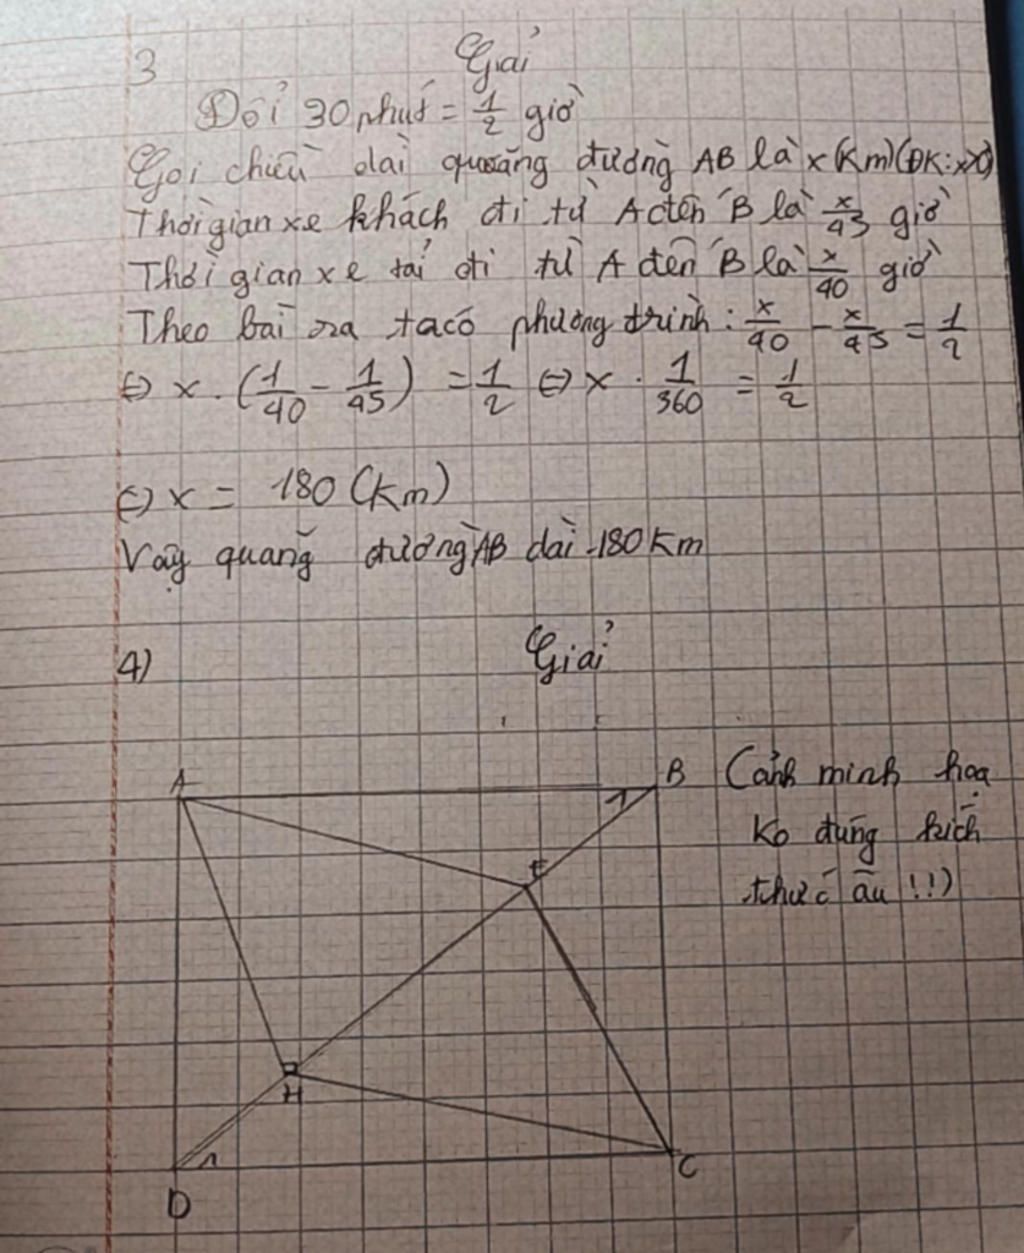 3 Giải
Đổi 30 phút = 1/2 giờ
Gọi chiều dài quãng đường AB là x (Km) (ĐK: x>0)
Thời gian xe khách đi từ A đến B là x/45 giờ
Thời gian xe tải đi từ A đến B là x/40 giờ
Theo bài ra ta có phương trình: x/40 - x/45 = 1/2
⇔ x . (1/40 - 1/45) = 1/2 ⇔ x . 1/360 = 1/2
⇔ x = 180 (Km)
Vậy quãng đường AB dài 180 Km
4) Giải
A
B
(Cảnh minh hoạ
Ko đúng kích
thước âu !!)
1
E
H
1
D
C